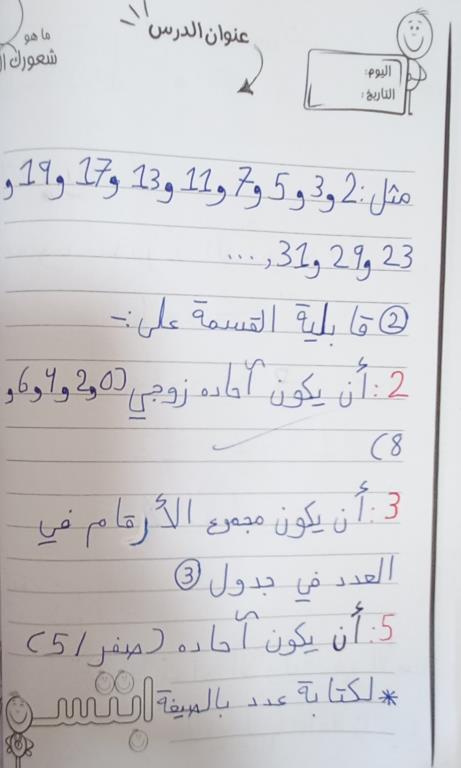 ما هو
عنوان الدرس
شعورك
اليوم:
التاريخ:
مثل: 2 و 3 و 5 و 7 و 11 و 13 و 17 و 19 و
23 و 29 و 31 و ...
② قابلية القسمة على :-
2: أن يكون آحاده زوجي (0 و 2 و 4 و 6 و
8)
3: أن يكون مجموع الأرقام في
العدد في جدول ③
5: أن يكون آحاده (صفر / 5)
* لكتابة عدد بالصيغة